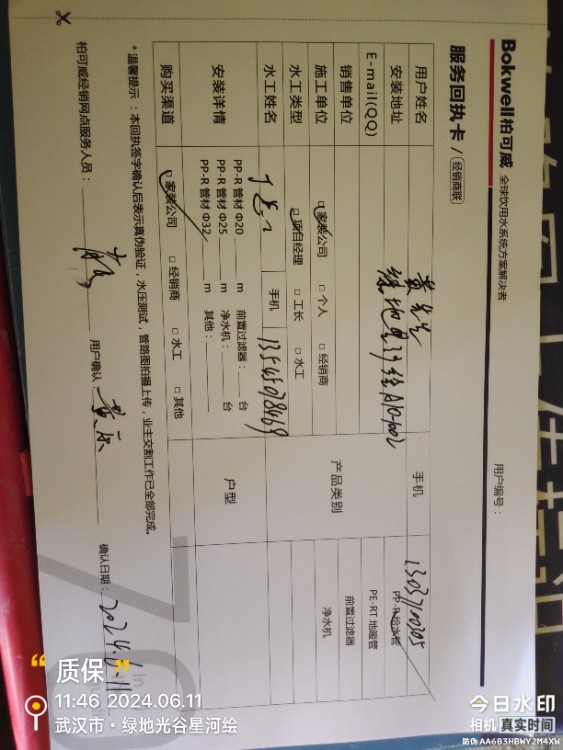 Bokwell柏可威 全球饮用水系统方案解决者
Bokwell
服务回执卡 / 经销商联
用户编号：
用户姓名 黄先生 手机 13037100305
安装地址
E-mail(QQ)
销售单位
施工单位 □家装公司 □个人 □经销商
水工类型 □项目经理 □工长 □水工
水工姓名 手机 13545078469
产品类别 PP-R给水管
PE-RT地暖管
前置过滤器
净水机
安装详情 PP-R管材 Φ20 m 前置过滤器： 台
PP-R管材 Φ25 m 净水机： 台
PP-R管材 Φ32 m 其他：
户型
购买渠道 □家装公司 □经销商 □水工 □其他
*温馨提示：本回执签字确认后表示真伪验证，水压测试，管路图拍摄上传，业主交割工作已全部完成。
柏可威经销网点服务人员： 用户确认： 确认日期：2024.6.11
“质保”
11:46 2024.06.11
武汉市·绿地光谷星河绘
今日水印
相机 真实时间
防伪 AA6B3HBWY2M4XW